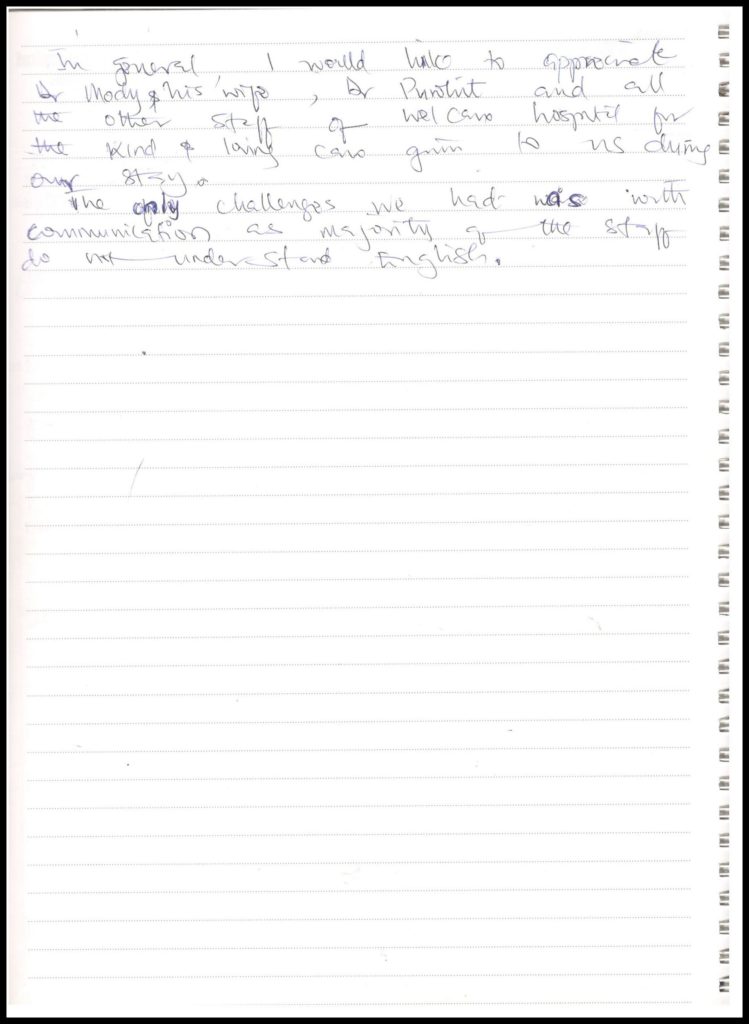 In general, I would like to appreciate
Dr Mody & his wife, Dr Purohit and all
the other staff of welcare hospital for
the kind & loving care given to us during
our stay.
The only challenges we had was with
communication as majority of the staff
do not understand English.